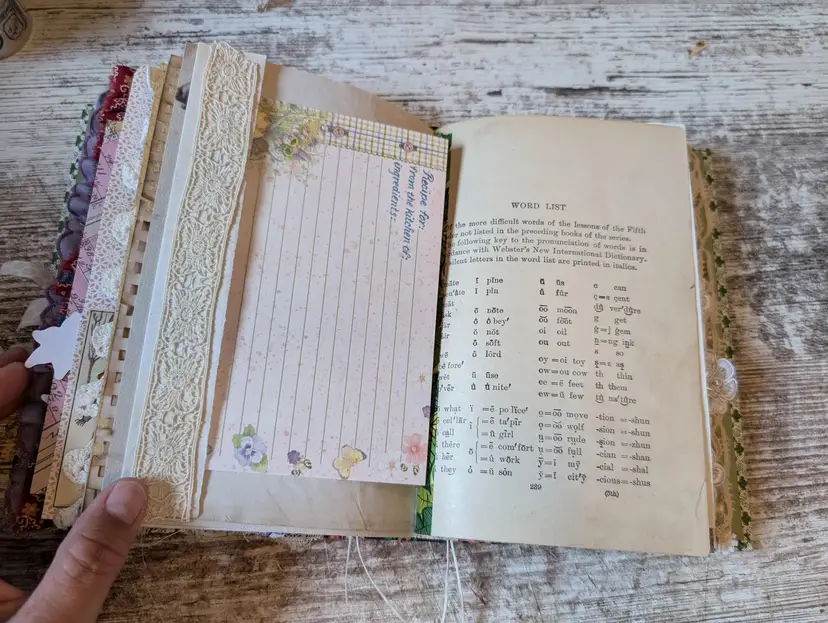 Recipe for:
from the kitchen of:
ingredients:
WORD LIST
the more difficult words of the lessons of the Fifth
not listed in the preceding books of the series.
following key to the pronunciation of words is in
with Webster's New International Dictionary.
silent letters in the word list are printed in italics.
ī pīne ŭ ŭs c can
ĭ pĭn û fûr ç=s çent
ō nōte o͞o mo͞on dū̇ ver'dū̇re
ō̇ ō̇ bey' o͝o fo͝ot g get
ŏ nŏt oi oil ġ=j ġem
ŏ sŏft ou out ṉ=ng iṉk
ô lôrd s so
oy=oi toy s̱=z as̱
ū ūse ow=ou cow th thin
ū̇ ū̇ nite' ee=ē feet th them
ew=ū few tū̇ na'tū̇re
what ï =ē po lïce' o̤=o͞o mo̤ve -tion =-shun
cel'lãr =ē ta'pĩr o̤=o͝o wo̤lf -sion =-shun
call =û gĩrl ṳ=o͞o rṳde -sion =-zhun
there =ē com'fõrt ṳ=o͝o fṳll -cian =-shan
her =û wõrk ȳ=ī mȳ -cial =-shal
they ȯ=ŭ sȯn y̆=ĭ cit'y̆ -cious=-shus
239
(5th)